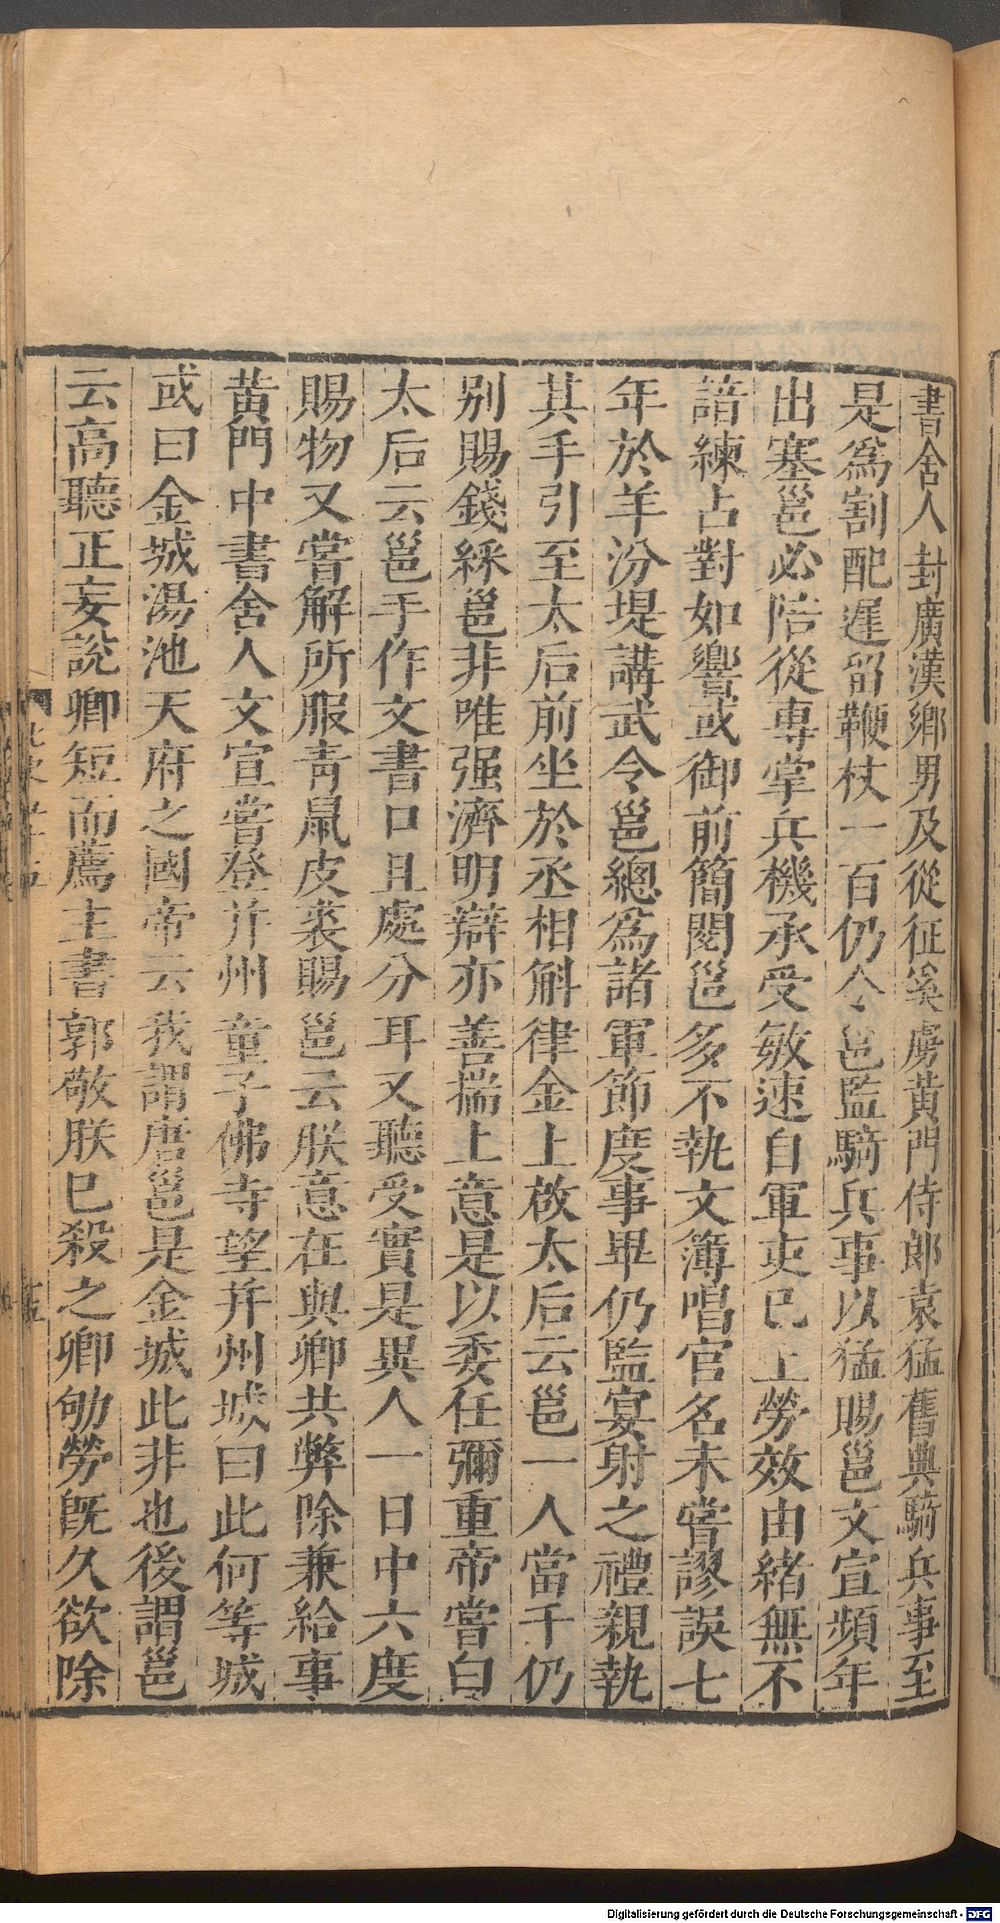 書舍人封廣漢鄉男及從征奚虜黃門侍郎袁猛舊典騎兵事至
是爲割配遲留鞭杖一百仍令邕監騎兵事以猛賜邕文宣頻年
出塞邕必陪從專掌兵機承受敏速自軍吏已上勞效由緒無不
諳練占對如響或御前簡閱邕多不執文簿唱官名未嘗謬誤七
年於羊汾堤講武令邕總爲諸軍節度事畢仍監宴射之禮親執
其手引至太后前坐於丞相斛律金上啟太后云邕一人當千仍
别賜錢綵邕非唯强濟明辯亦善揣上意是以委任彌重帝嘗白
太后云邕手作文書口且處分耳又聽受實是異人一日中六度
賜物又嘗解所服青鼠皮裘賜邕云朕意在與卿共弊除兼給事
黃門中書舍人文宣嘗登并州童子佛寺望并州城曰此何等城
或曰金城湯池天府之國帝云我謂唐邕是金城此非也後謂邕
云高聽正妄說卿短而薦主書郭敬朕已殺之卿劬勞旣久欲除
Digitalisierung gefördert durch die Deutsche Forschungsgemeinschaft - DFG